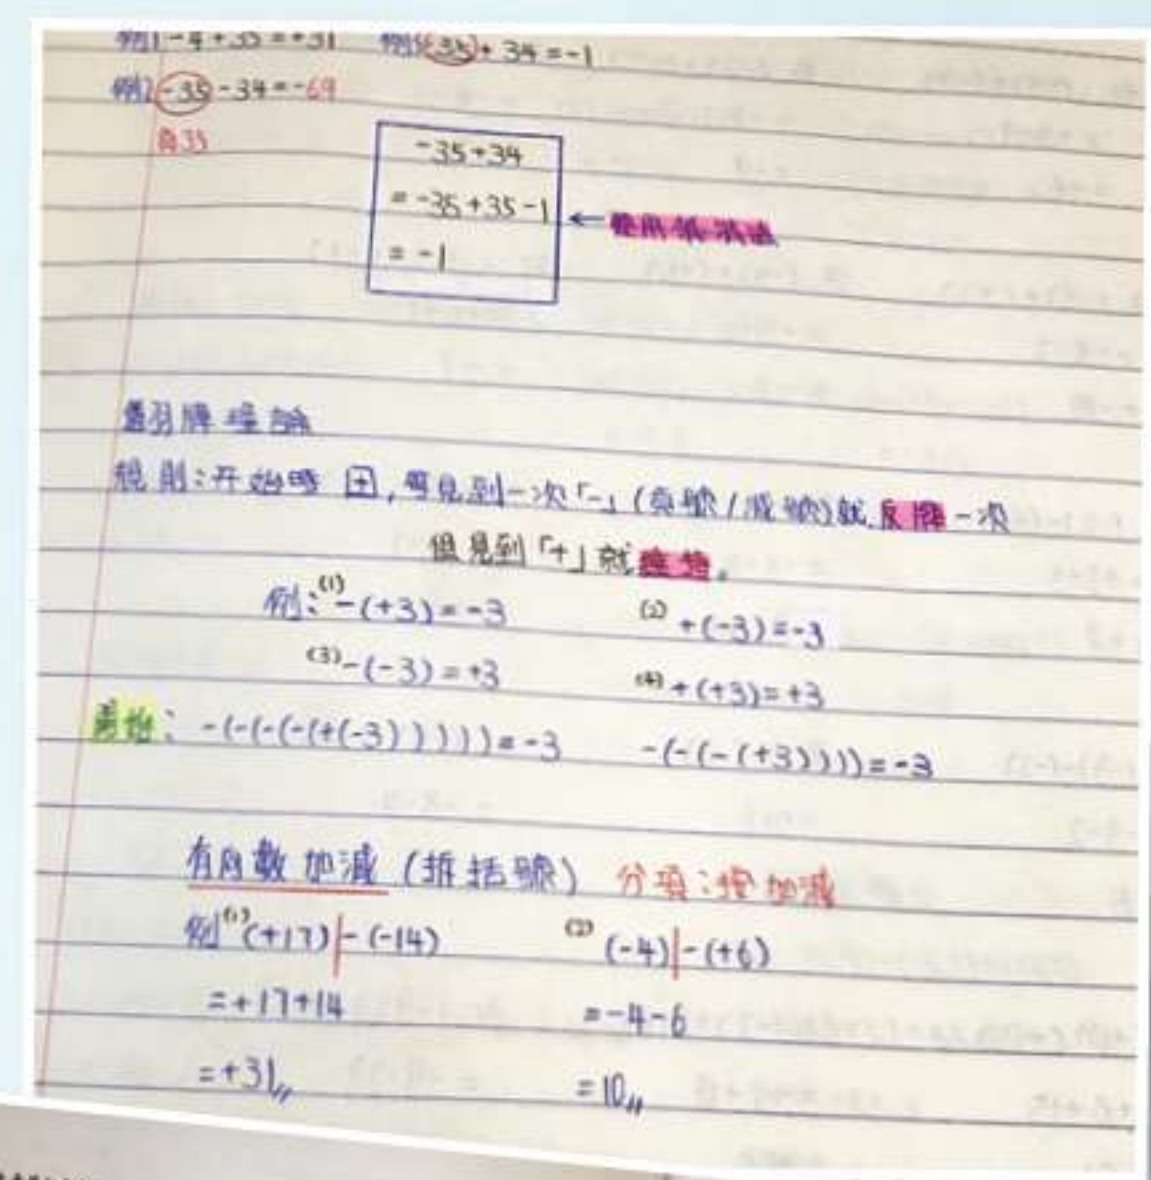 例1 -4+35=+31 例3 -35+34=-1
例2 -35-34=-69
負35
-35+34
=-35+35-1
=-1
翻牌理論
規則:开始時 田,每見到一次「-」(負號/減號)就反牌一次
但見到「+」就
例:(1) -(+3)=-3 (2) +(-3)=-3
(3) -(-3)=+3 (4) +(+3)=+3
-(-(-(-(+(-3)))))=-3 -(-(-(+3))))=-3
有向數加減 (拆括號) 分項:按加減
例(1) (+17)|-(-14) (2) (-4)|-(+6)
=+17+14 =-4-6
=+31,, =10,,